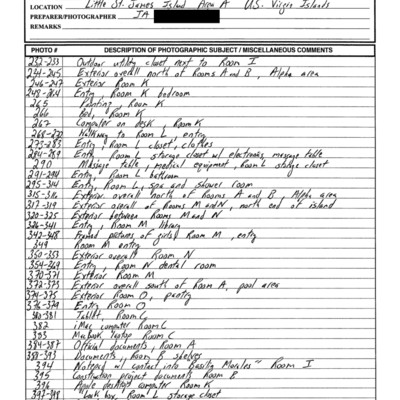 LOCATION Little St. James Island Area A U.S. Virgin Islands
PREPARER/PHOTOGRAPHER JA
REMARKS
PHOTO # DESCRIPTION OF PHOTOGRAPHIC SUBJECT / MISCELLANEOUS COMMENTS
232-233 Outdoor utility closet next to Room I
234-245 Exterior overall north of Rooms A and B, Alpha area
246-247 Exterior Room K
248-264 Entry, Room K bedroom
265 Painting, Room K
266 Bed, Room K
267 Computer on desk, Room K
268-272 Walkway to Room L, entry
273-283 Entry, Room L closet, clothes
284-289 Entry, Room L storage closet w/ electronics, massage table
290 Massage table, medical equipment, Room L storage closet
291-294 Entry, Room L bathroom
295-314 Entry, Room L, spa and shower room
315-316 Exterior overall north of Rooms A and B, Alpha area
317-319 Exterior overall of Rooms M and N, north end of island
320-325 Exterior between Rooms M and N
326-341 Entry, Room M library
342-348 Framed pictures of girls, Room M, entry
349 Room M entry
350-353 Exterior overall Room N
354-369 Entry, Room N dental room
370-371 Exterior Room M
372-373 Exterior overall south of Room A, pool area
374-375 Exterior Room O, pantry
376-379 Entry Room O
380-381 Tablet, Room C
382 iMac computer Room C
383 Macbook laptop Room C
384-387 Official documents, Room A
388-393 Documents, Room B shelves
394 Notepad w/ contact info Room I
395 Construction project documents Room B
396 Apple desktop computer Room K
397-398 box, Room L storage closet